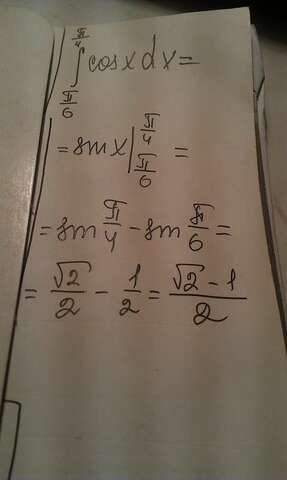 ∫_{π/6}^{π/4} cos x dx =
= sin x |_{π/6}^{π/4} =
= sin π/4 - sin π/6 =
= √2/2 - 1/2 = (√2 - 1)/2